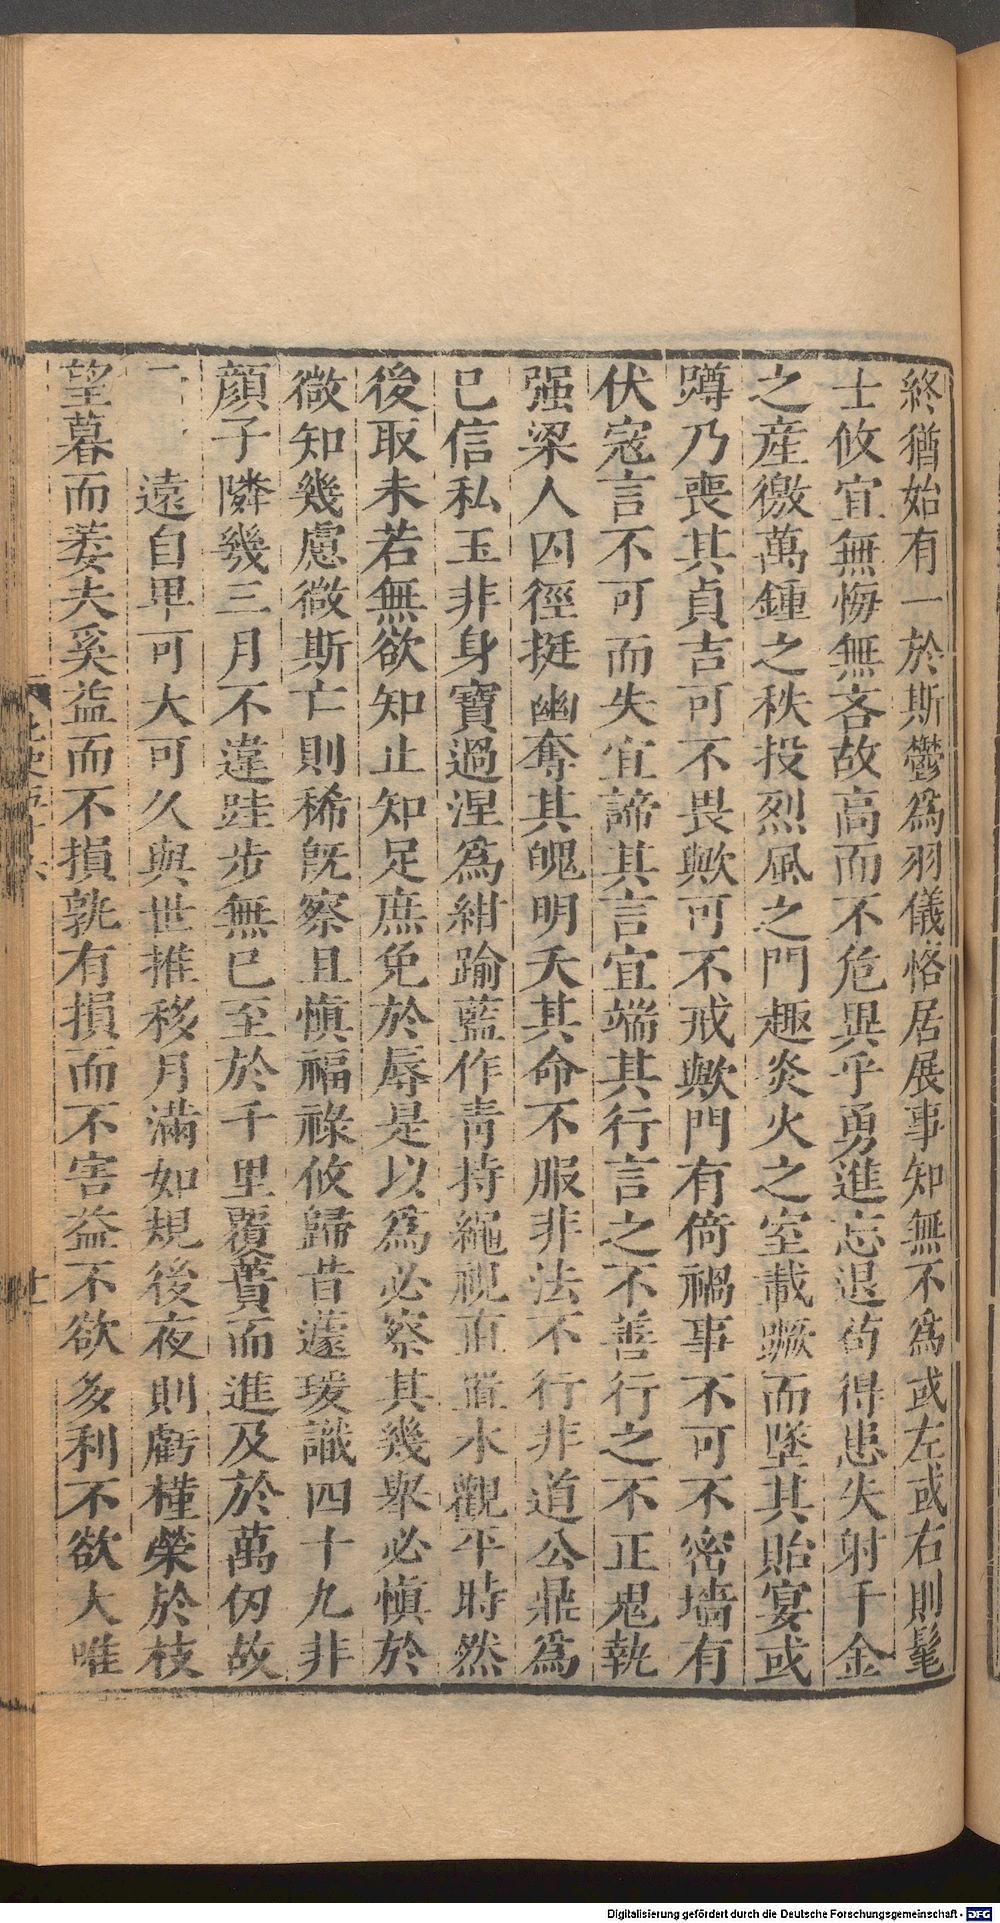 終猶始有一於斯鬱爲羽儀恪居展事知無不爲或左或右則髦
士攸宜無悔無吝故高而不危異乎勇進忘退苟得患失射千金
之產徼萬鍾之秩投烈風之門趣炎火之室載蹶而墜其貽宴或
蹲乃喪其貞吉可不畏歟可不戒歟門有倚禍事不可不密墻有
伏寇言不可而失宜諦其言宜端其行言之不善行之不正鬼執
强梁人囚徑挺幽奪其魄明夭其命不服非法不行非道公鼎爲
已信私玉非身寶過涅爲紺踰藍作青持繩視直置水觀平時然
後取未若無欲知止知足庶免於辱是以爲必察其幾舉必慎於
微知幾慮微斯亡則稀旣察且慎福祿攸歸昔蘧瑗識四十九非
顏子隣幾三月不違跬步無已至於千里覆蕢而進及於萬仞故
遠自卑可大可久與世推移月滿如規後夜則虧槿榮於枝
望暮而萎夫奚益而不損孰有損而不害益不欲多利不欲大唯
Digitalisierung gefördert durch die Deutsche Forschungsgemeinschaft - DFG